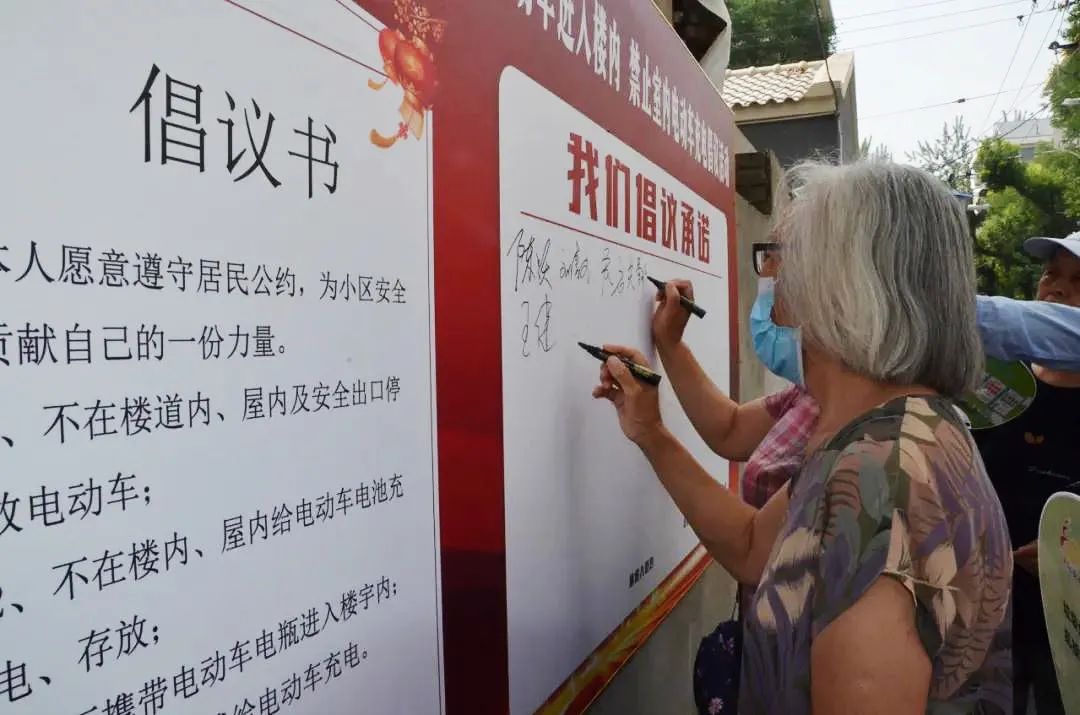 倡议书
本人愿意遵守居民公约，为小区安全
贡献自己的一份力量。
、不在楼道内、屋内及安全出口停
放电动车；
、不在楼内、屋内给电动车电池充
电、存放；
携带电动车电瓶进入楼宇内；
给电动车充电。
动车进入楼内 禁止室内电动车充电倡议活动
我们倡议承诺
王健